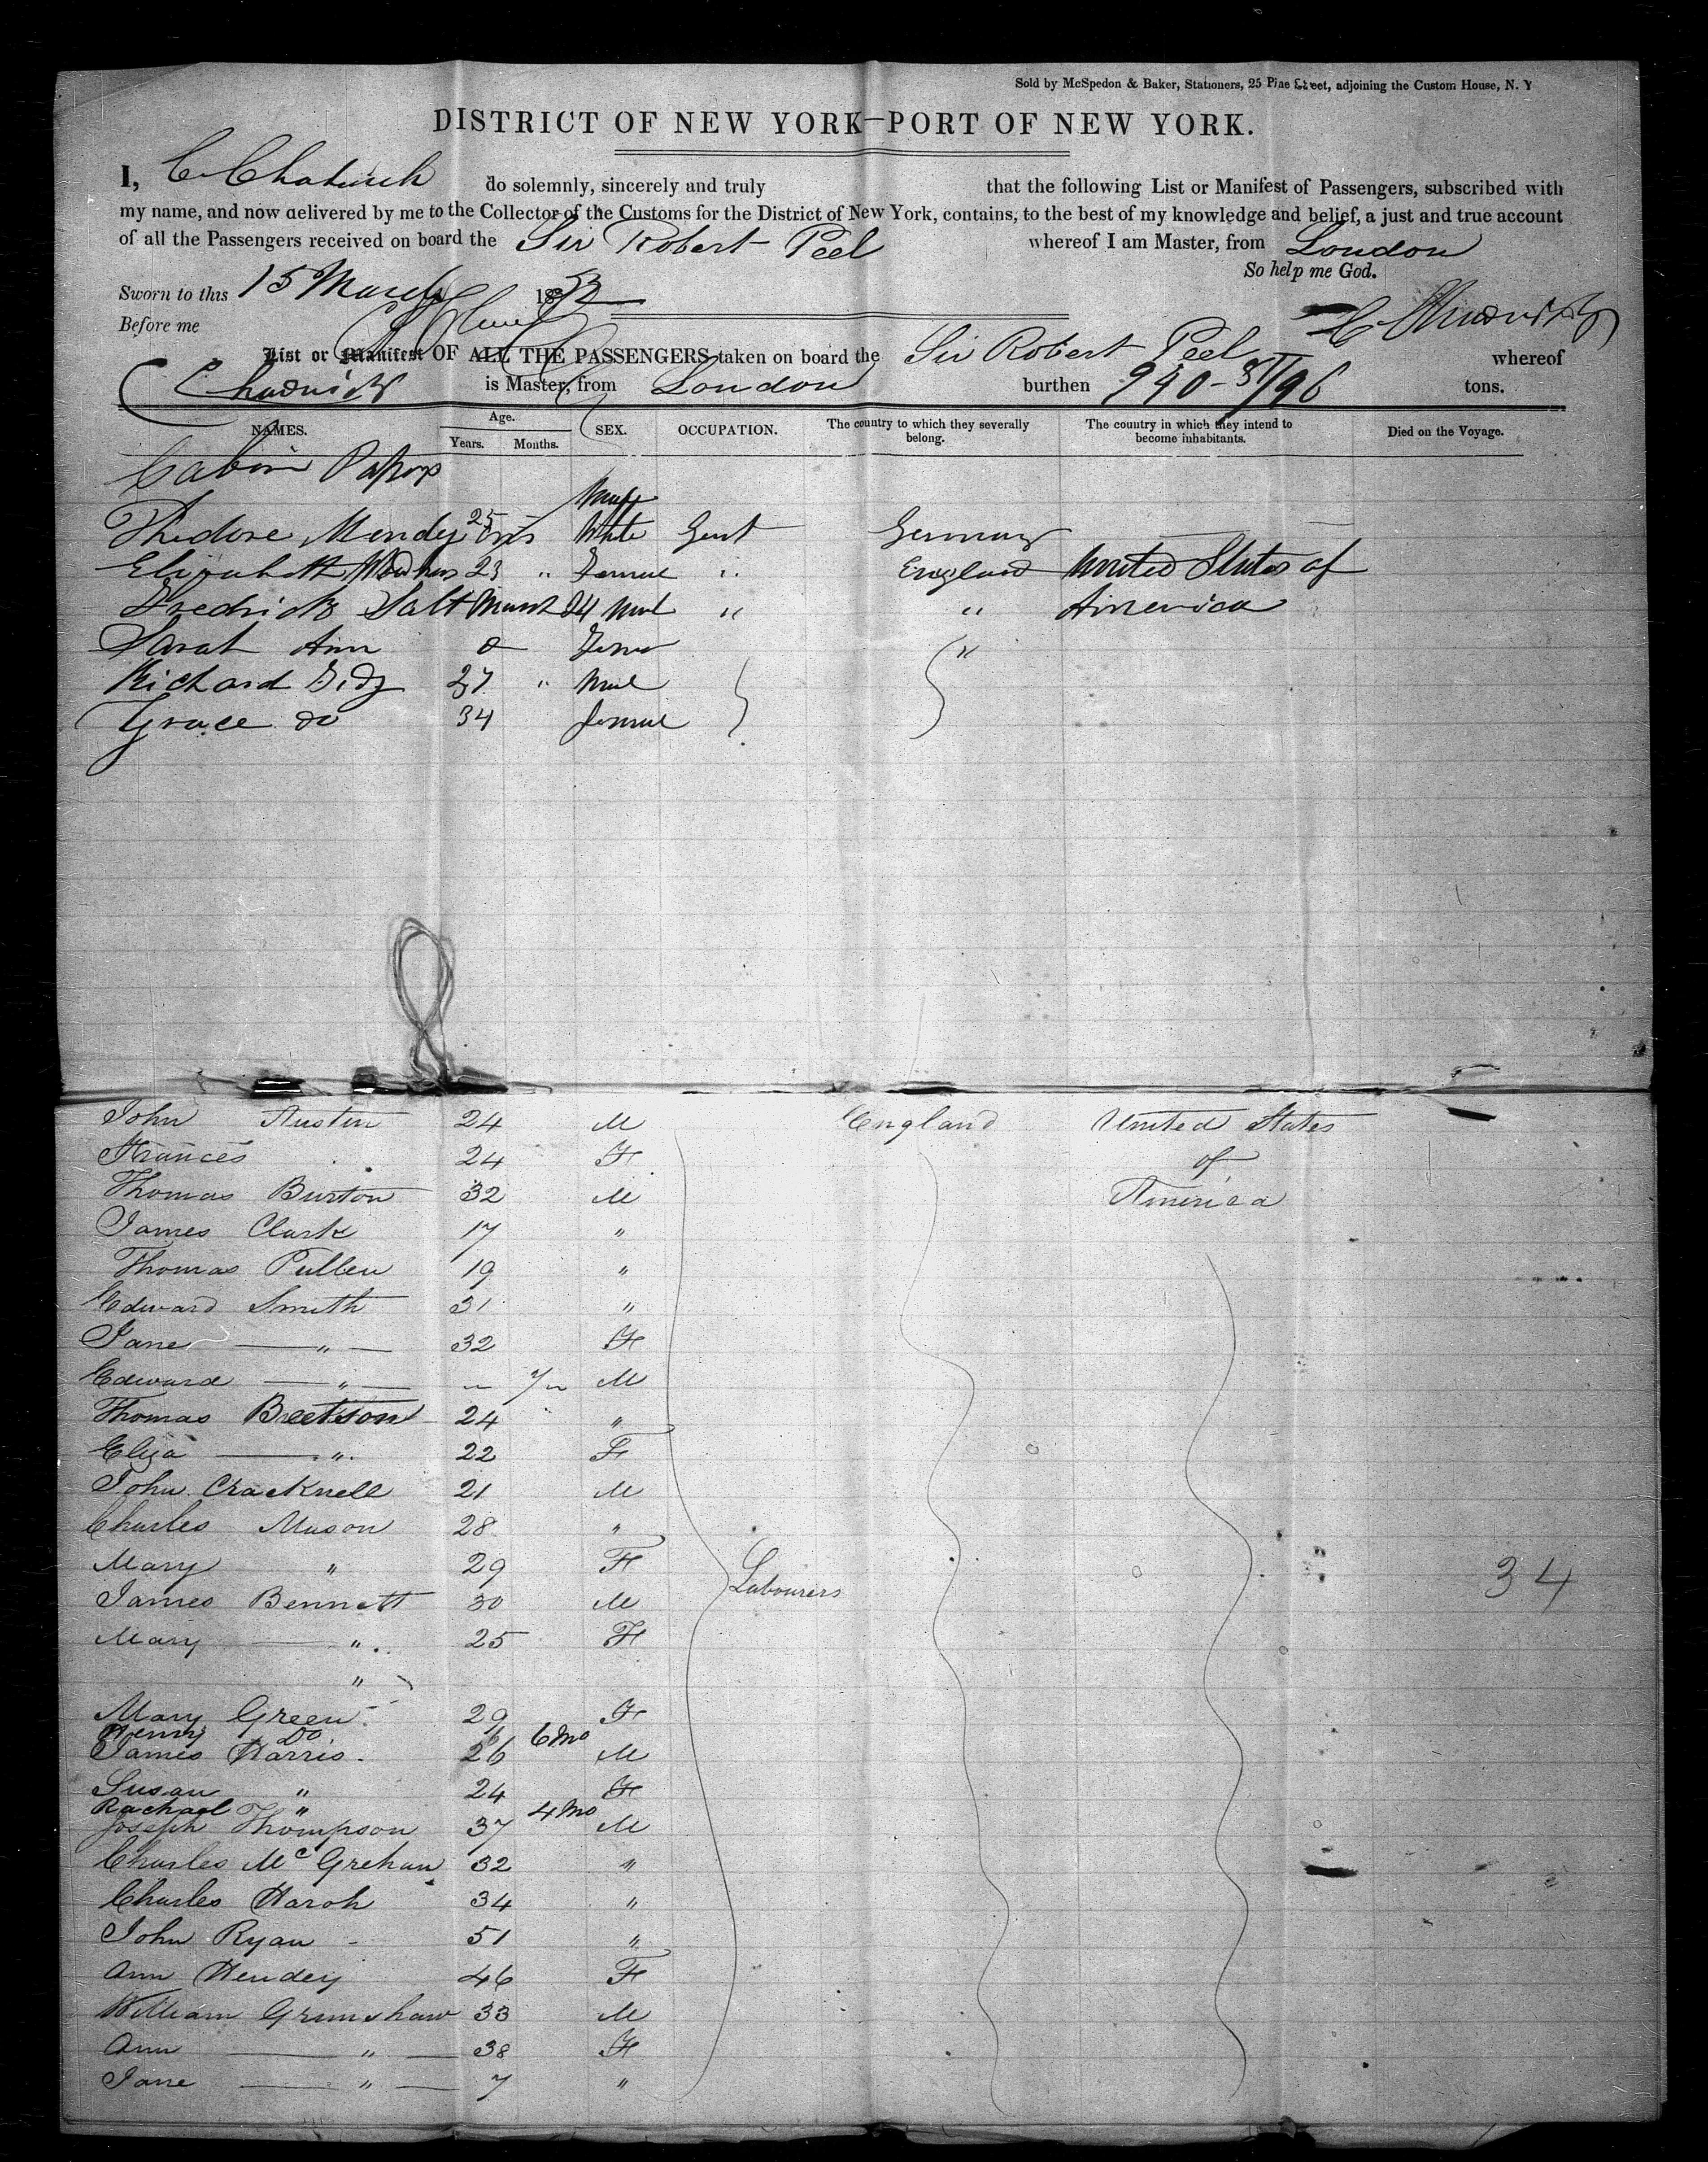 Sold by McSpedon & Baker, Stationers, 25 Pine Street, adjoining the Custom House, N. Y
DISTRICT OF NEW YORK—PORT OF NEW YORK.
I, C Chadwick do solemnly, sincerely and truly that the following List or Manifest of Passengers, subscribed with
my name, and now delivered by me to the Collector of the Customs for the District of New York, contains, to the best of my knowledge and belief, a just and true account
of all the Passengers received on board the Sir Robert Peel whereof I am Master, from London
So help me God.
Sworn to this 15 March 185
Before me C Chadwick
List or Manifest OF ALL THE PASSENGERS taken on board the Sir Robert Peel whereof
C Chadwick is Master, from London burthen 940-51/96 tons.
NAMES. Age. Years. Months. SEX. OCCUPATION. The country to which they severally belong. The country in which they intend to become inhabitants. Died on the Voyage.
Cabin
Thedore 25 Gent Germany
Elizabeth 23 " Female " England United States of
Fredrick Salt 24 Mal " " America
Sarah Ann "
Richard 27 " Male
Grace do 34 Female
John Austin 24 M England United States
Frances 24 F of
Thomas Burton 32 M America
James Clark 17 "
Thomas Pullen 19 "
Edward Smith 31 "
Jane " 32 F
Edward " M
Thomas Breetson 24 "
Eliza " 22 F
John Cracknell 21 M
Charles Mason 28 "
Mary " 29 F Labourers 34
James Bennett 30 M
Mary " 25 F
"
Mary Green 29 F
Henry Do 6 Mo
James Harris 26 M
Susan " 24 F
Rachael " 4 Mo
Joseph Thompson 37 M
Charles McGrehan 32 "
Charles Haroh 34 "
John Ryan 51 "
Ann Hendey 46 F
William Grimshaw 33 M
Ann " 38 F
Jane " 7 "